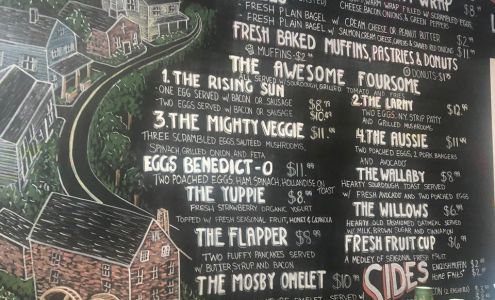 WRAP $8
- FRESH PLAIN BAGEL
- FRESH PLAIN BAGEL W/ CREAM CHEESE OR PEANUT BUTTER $2
WARM WRAP FILLED W/ SCRAMBLED EGGS,
CHEESE BACON, ONIONS, & GREEN PEPPERS
FRESH BAKED MUFFINS, PASTRIES & DONUTS
MUFFINS-$2
DONUTS-$1
THE AWESOME FOURSOME
ALL SERVED W/ SOURDOUGH, GRILLED TOMATO AND FRIES
1. THE RISING SUN
- ONE EGG SERVED W/ BACON OR SAUSAGE
TWO EGGS SERVED W/ BACON OR SAUSAGE
3. THE MIGHTY VEGGIE $11
THREE SCRAMBLED EGGS, SAUTEED MUSHROOMS,
SPINACH GRILLED ONION AND FETA
EGGS BENEDICT-O $11.99
TWO POACHED EGGS, HAM, SPINACH, HOLLANDISE ON TOAST
THE YUPPIE $8
FRESH STRAWBERRY ORGANIC YOGURT
TOPPED W/ FRESH SEASONAL FRUIT, HONEY & GRANOLA
THE FLAPPER $8.99
TWO FLUFFY PANCAKES SERVED
W/ BUTTER SYRUP AND BACON
THE MOSBY OMELET $10.99
OMELET SERVED
2. THE LARRY $12.99
TWO EGGS, NY STRIP PATTY
AND GRILLED MUSHROOMS
4. THE AUSSIE $11.99
TWO POACHED EGGS, 2 PORK BANGERS
AND AVOCADO
THE WALLABY $8.99
HEARTY SOURDOUGH TOAST SERVED
W/ FRESH AVOCADO AND TWO POACHED EGGS
THE WILLOWS $6.99
HEARTY OLD FASHIONED OATMEAL SERVED
W/ MILK, BROWN SUGAR AND CINNAMON
FRESH FRUIT CUP $6.99
A MEDLEY OF SEASONAL FRESH FRUIT
SIDES
ENGLISH MUFFIN $2
HOME FRIES $2